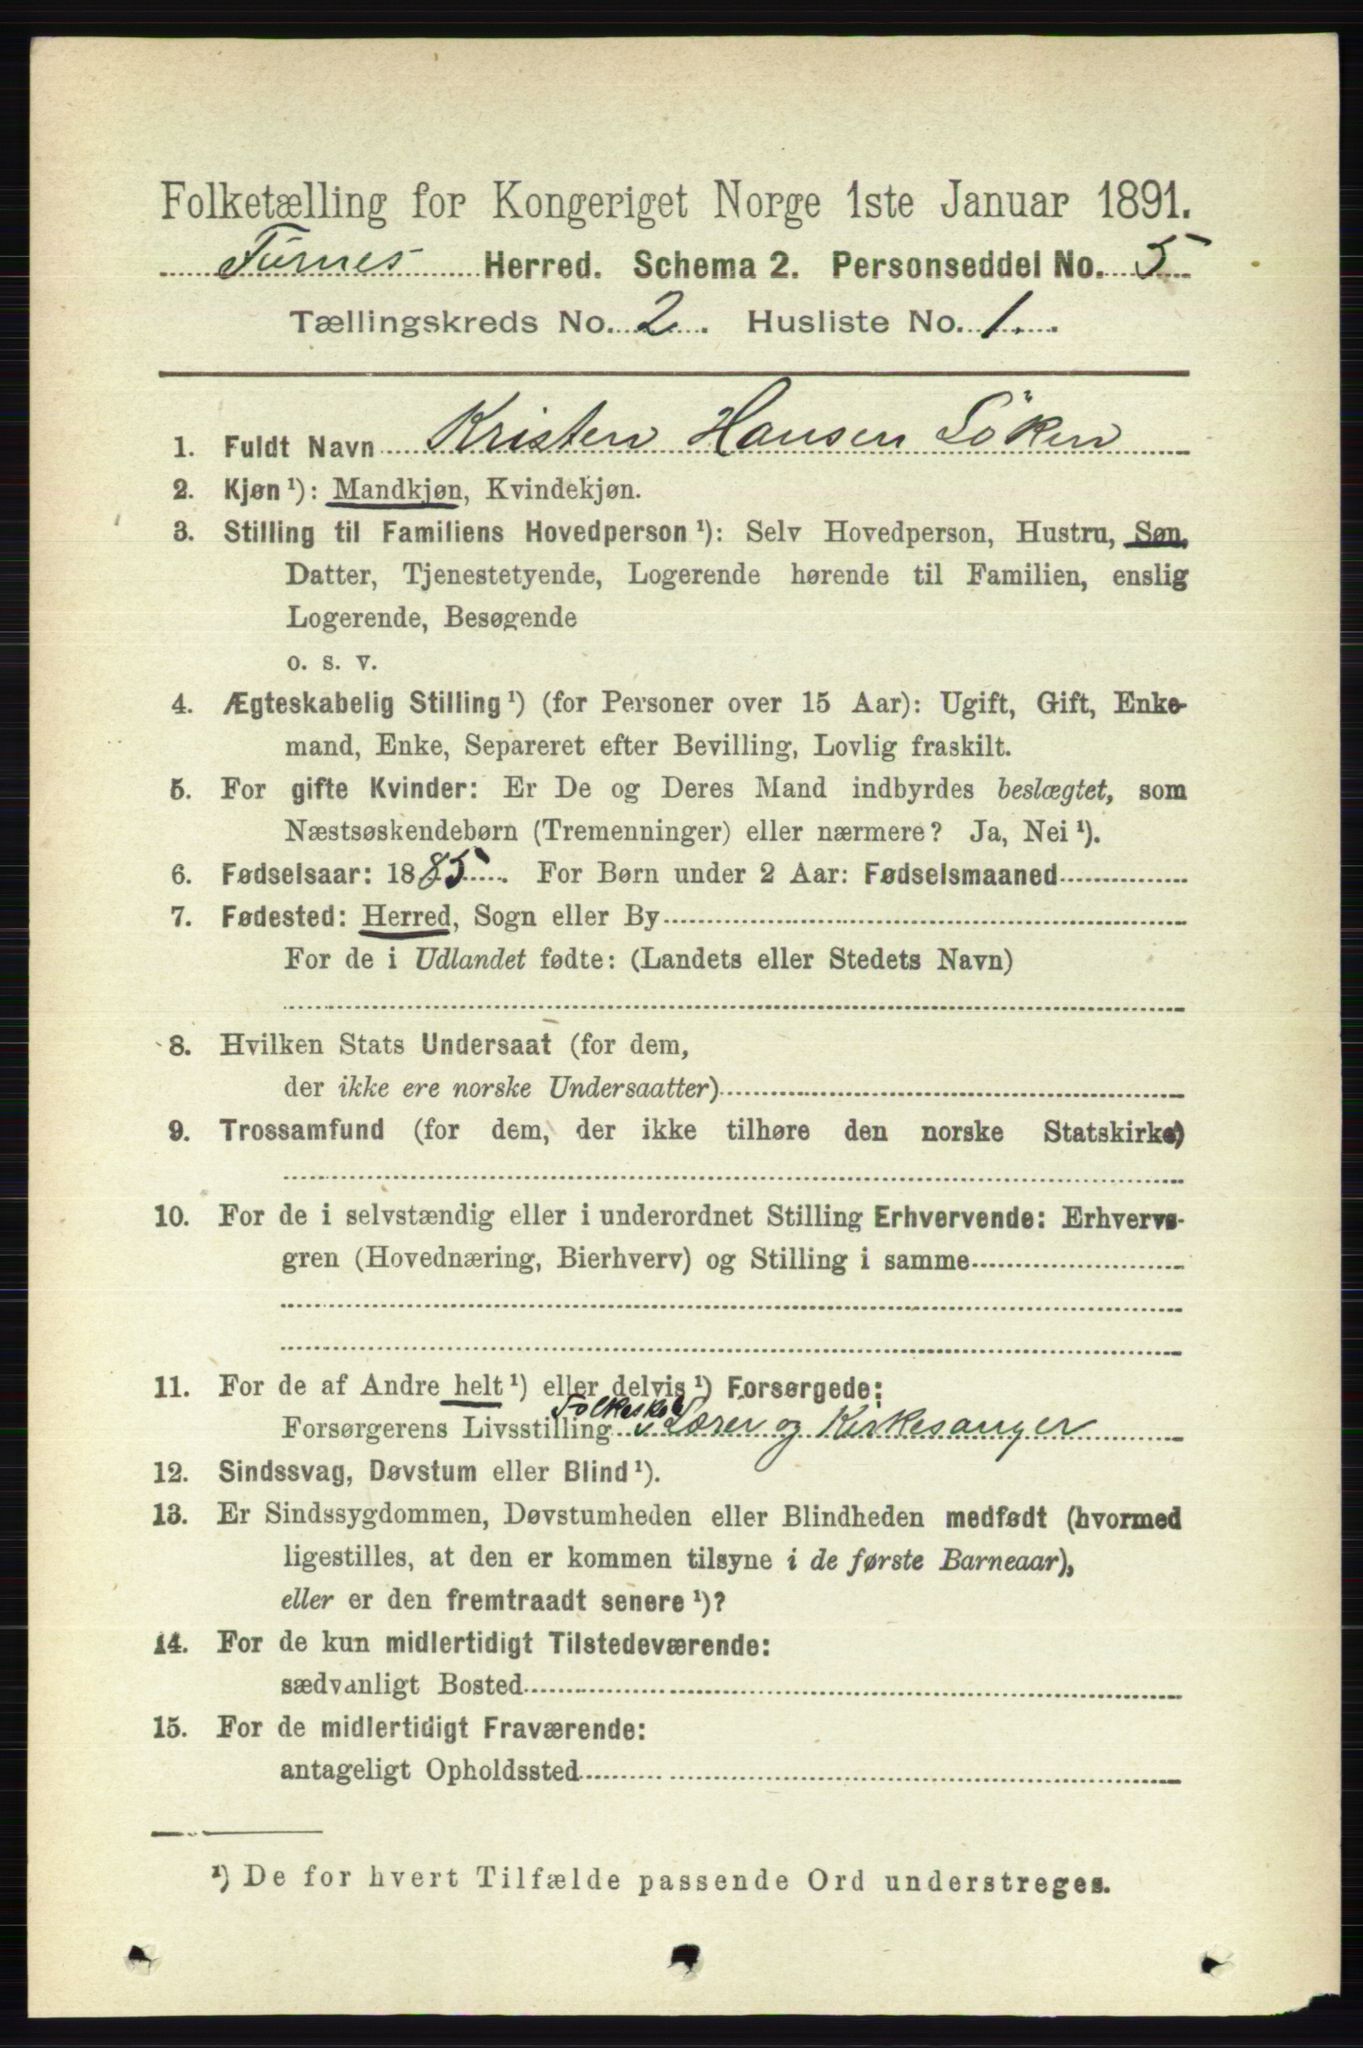 Folketælling for Kongeriget Norge 1ste Januar 1891.
Furnes Herred. Schema 2. Personseddel No. 5
Tællingskreds No. 2. Husliste No. 1.
1. Fuldt Navn Kristen Hansen Löken
2. Kjøn ¹): Mandkjøn, Kvindekjøn.
3. Stilling til Familiens Hovedperson ¹): Selv Hovedperson, Hustru, Søn,
Datter, Tjenestetyende, Logerende hørende til Familien, enslig
Logerende, Besøgende
o. s. v.
4. Ægteskabelig Stilling ¹) (for Personer over 15 Aar): Ugift, Gift, Enke-
mand, Enke, Separeret efter Bevilling, Lovlig fraskilt.
5. For gifte Kvinder: Er De og Deres Mand indbyrdes beslægtet, som
Næstsøskendebørn (Tremenninger) eller nærmere? Ja, Nei ¹).
6. Fødselsaar: 1885. For Børn under 2 Aar: Fødselsmaaned
7. Fødested: Herred, Sogn eller By
For de i Udlandet fødte: (Landets eller Stedets Navn)
8. Hvilken Stats Undersaat (for dem,
der ikke ere norske Undersaatter)
9. Trossamfund (for dem, der ikke tilhøre den norske Statskirke)
10. For de i selvstændig eller i underordnet Stilling Erhvervende: Erhvervs-
gren (Hovednæring, Bierhverv) og Stilling i samme
11. For de af Andre helt ¹) eller delvis ¹) Forsørgede:
Folkeskole
Forsørgerens Livsstilling Lærer og Kirkesanger
12. Sindssvag, Døvstum eller Blind ¹).
13. Er Sindssygdommen, Døvstumheden eller Blindheden medfødt (hvormed
ligestilles, at den er kommen tilsyne i de første Barneaar),
eller er den fremtraadt senere ¹)?
14. For de kun midlertidigt Tilstedeværende:
sædvanligt Bosted
15. For de midlertidigt Fraværende:
antageligt Opholdssted
¹) De for hvert Tilfælde passende Ord understreges.